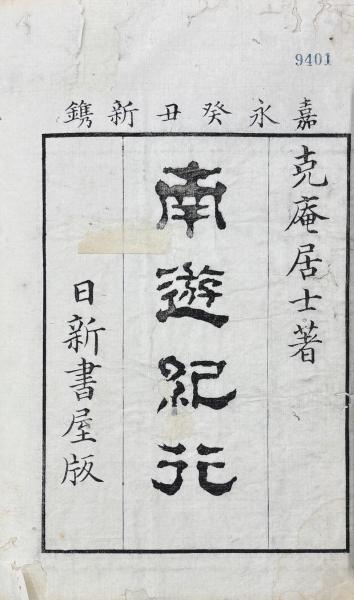 9401
嘉永癸丑新鐫
克庵居士著
南遊紀行
日新書屋版